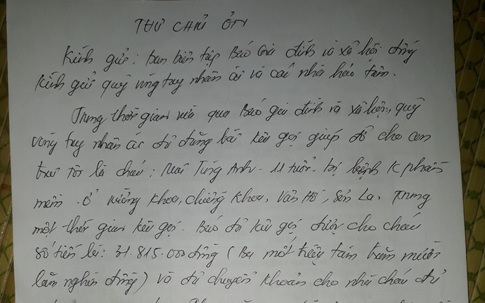 THƯ CHỦ ƠN
Kính gửi: Ban biên tập Báo Gia đình và xã hội đồng
Kính gửi quỹ vòng tay nhân ái và các nhà hảo tâm.
Trong thời gian vừa qua Báo gia đình và xã hội, quỹ
vòng tay nhân ái đã đăng bài kêu gọi giúp đỡ cho con
trai tôi là cháu: Mai Tùng Anh. 11 tuổi. bị bệnh K phần
mềm. Ở Vường Khoa, Chiềng Khoa, Vân Hồ, Sơn La. Trong
một thời gian kêu gọi. Báo đã kêu gọi được cho cháu
số tiền là: 31.815.000 đồng (Ba mốt triệu tám trăm mười
lăm nghìn đồng) và đã chuyển khoản cho nhà cháu đủ